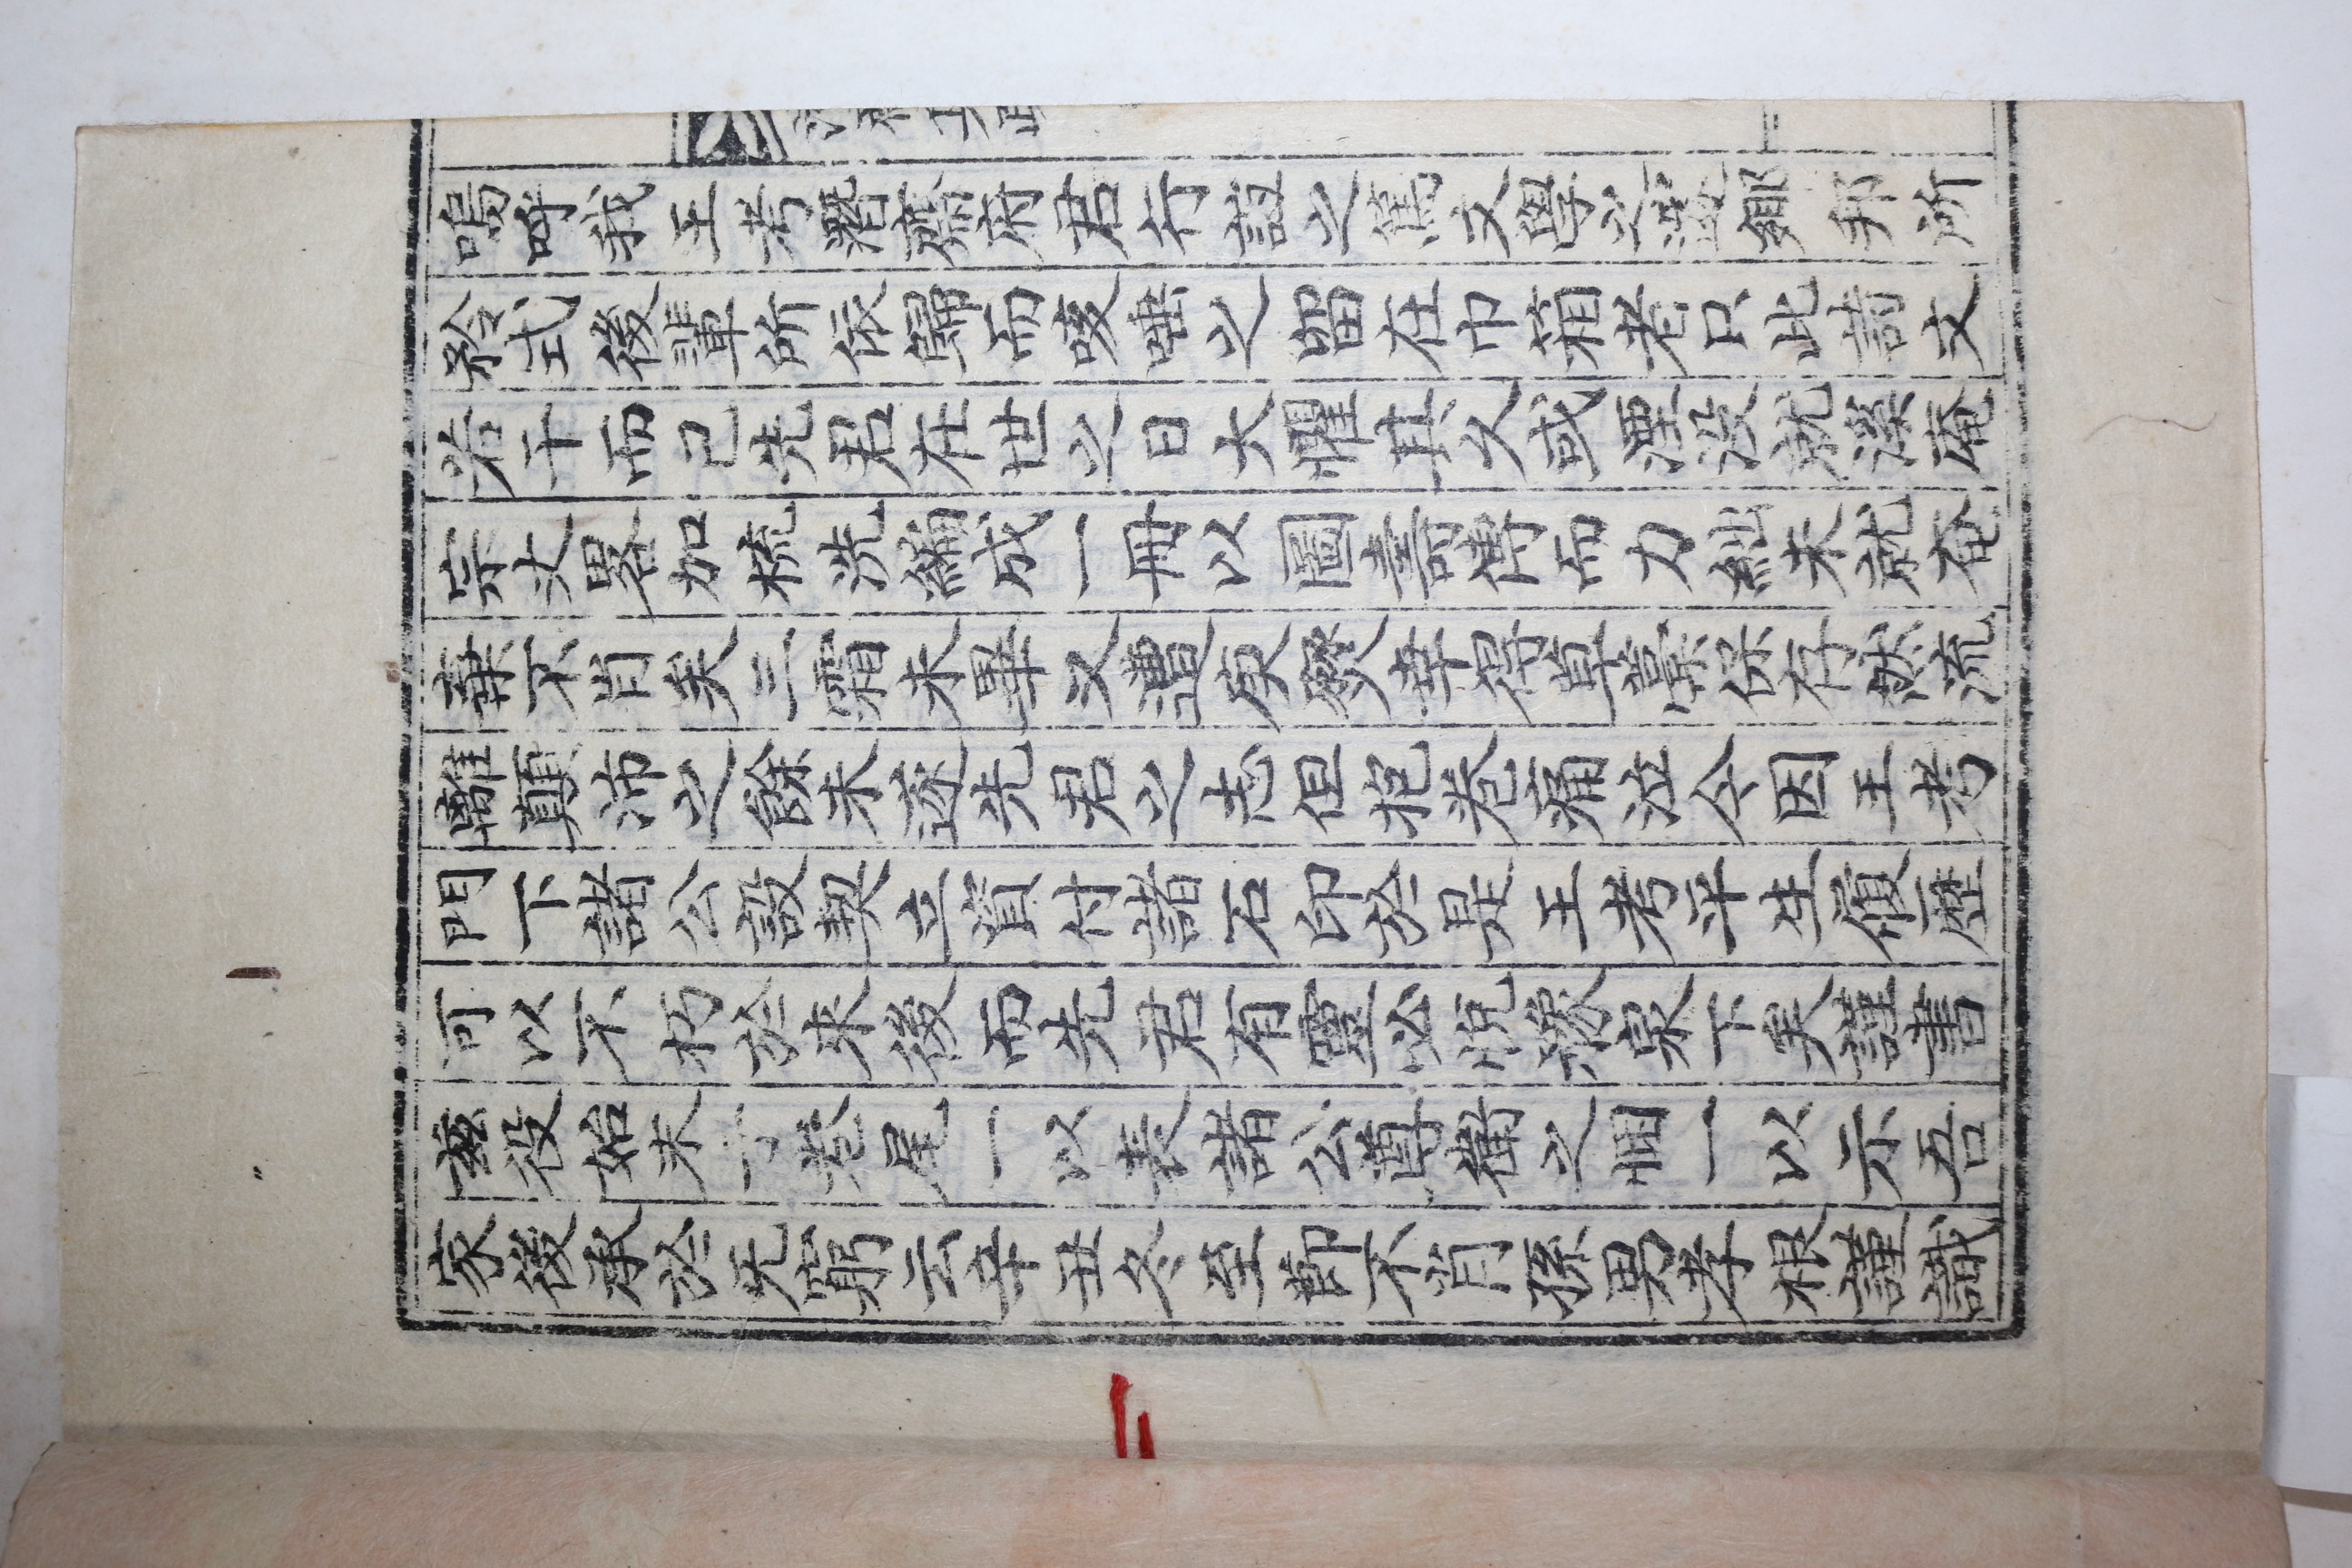 嗚呼我王考潛府君行誼之篤文學之邃鄉邦所
矜式後輩所依歸而咳唾之留在巾箱者只此詩文
若干而已先君在世之日大懼其久或湮沒就庵
宗丈畧加梳洗編成一冊以圖壽傳而力絀未就奄
棄不肖矣三霜未畢又遭燹幸得草藁保存然流
離顛沛之餘未遂先君之志但抱卷痛泣今因王考
門下諸公設契立資付諸石印於是王考平生履歷
可以不朽於來後而先君有靈必悅豫泉下矣謹書
玆役始末于卷尾一以表諸公尊衛之悃一以示吾
家後承於无窮云辛丑冬至節不肖孫男孝根謹識